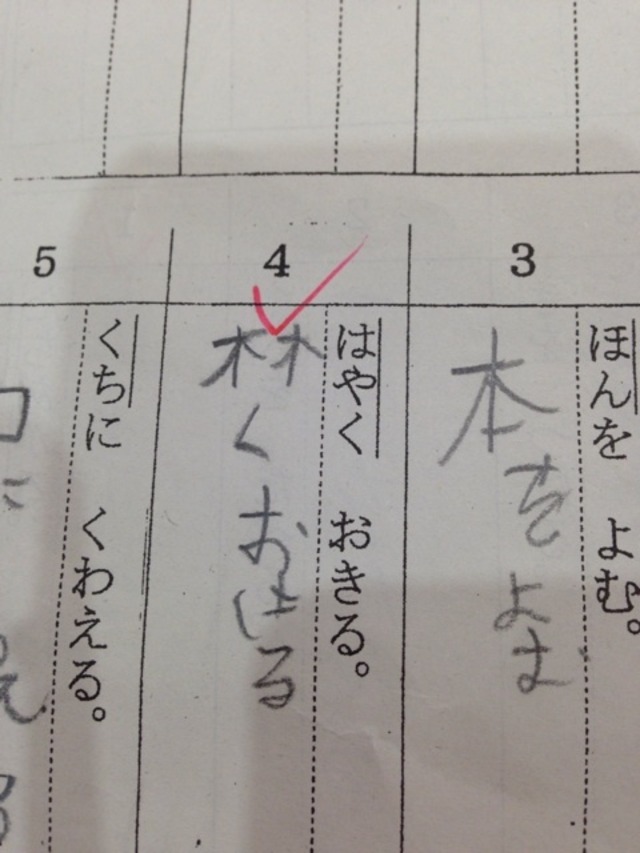 3
ほんを よむ。
本をよむ
4
はやく おきる。
林くおける
5
くちに くわえる。
口に
え
る